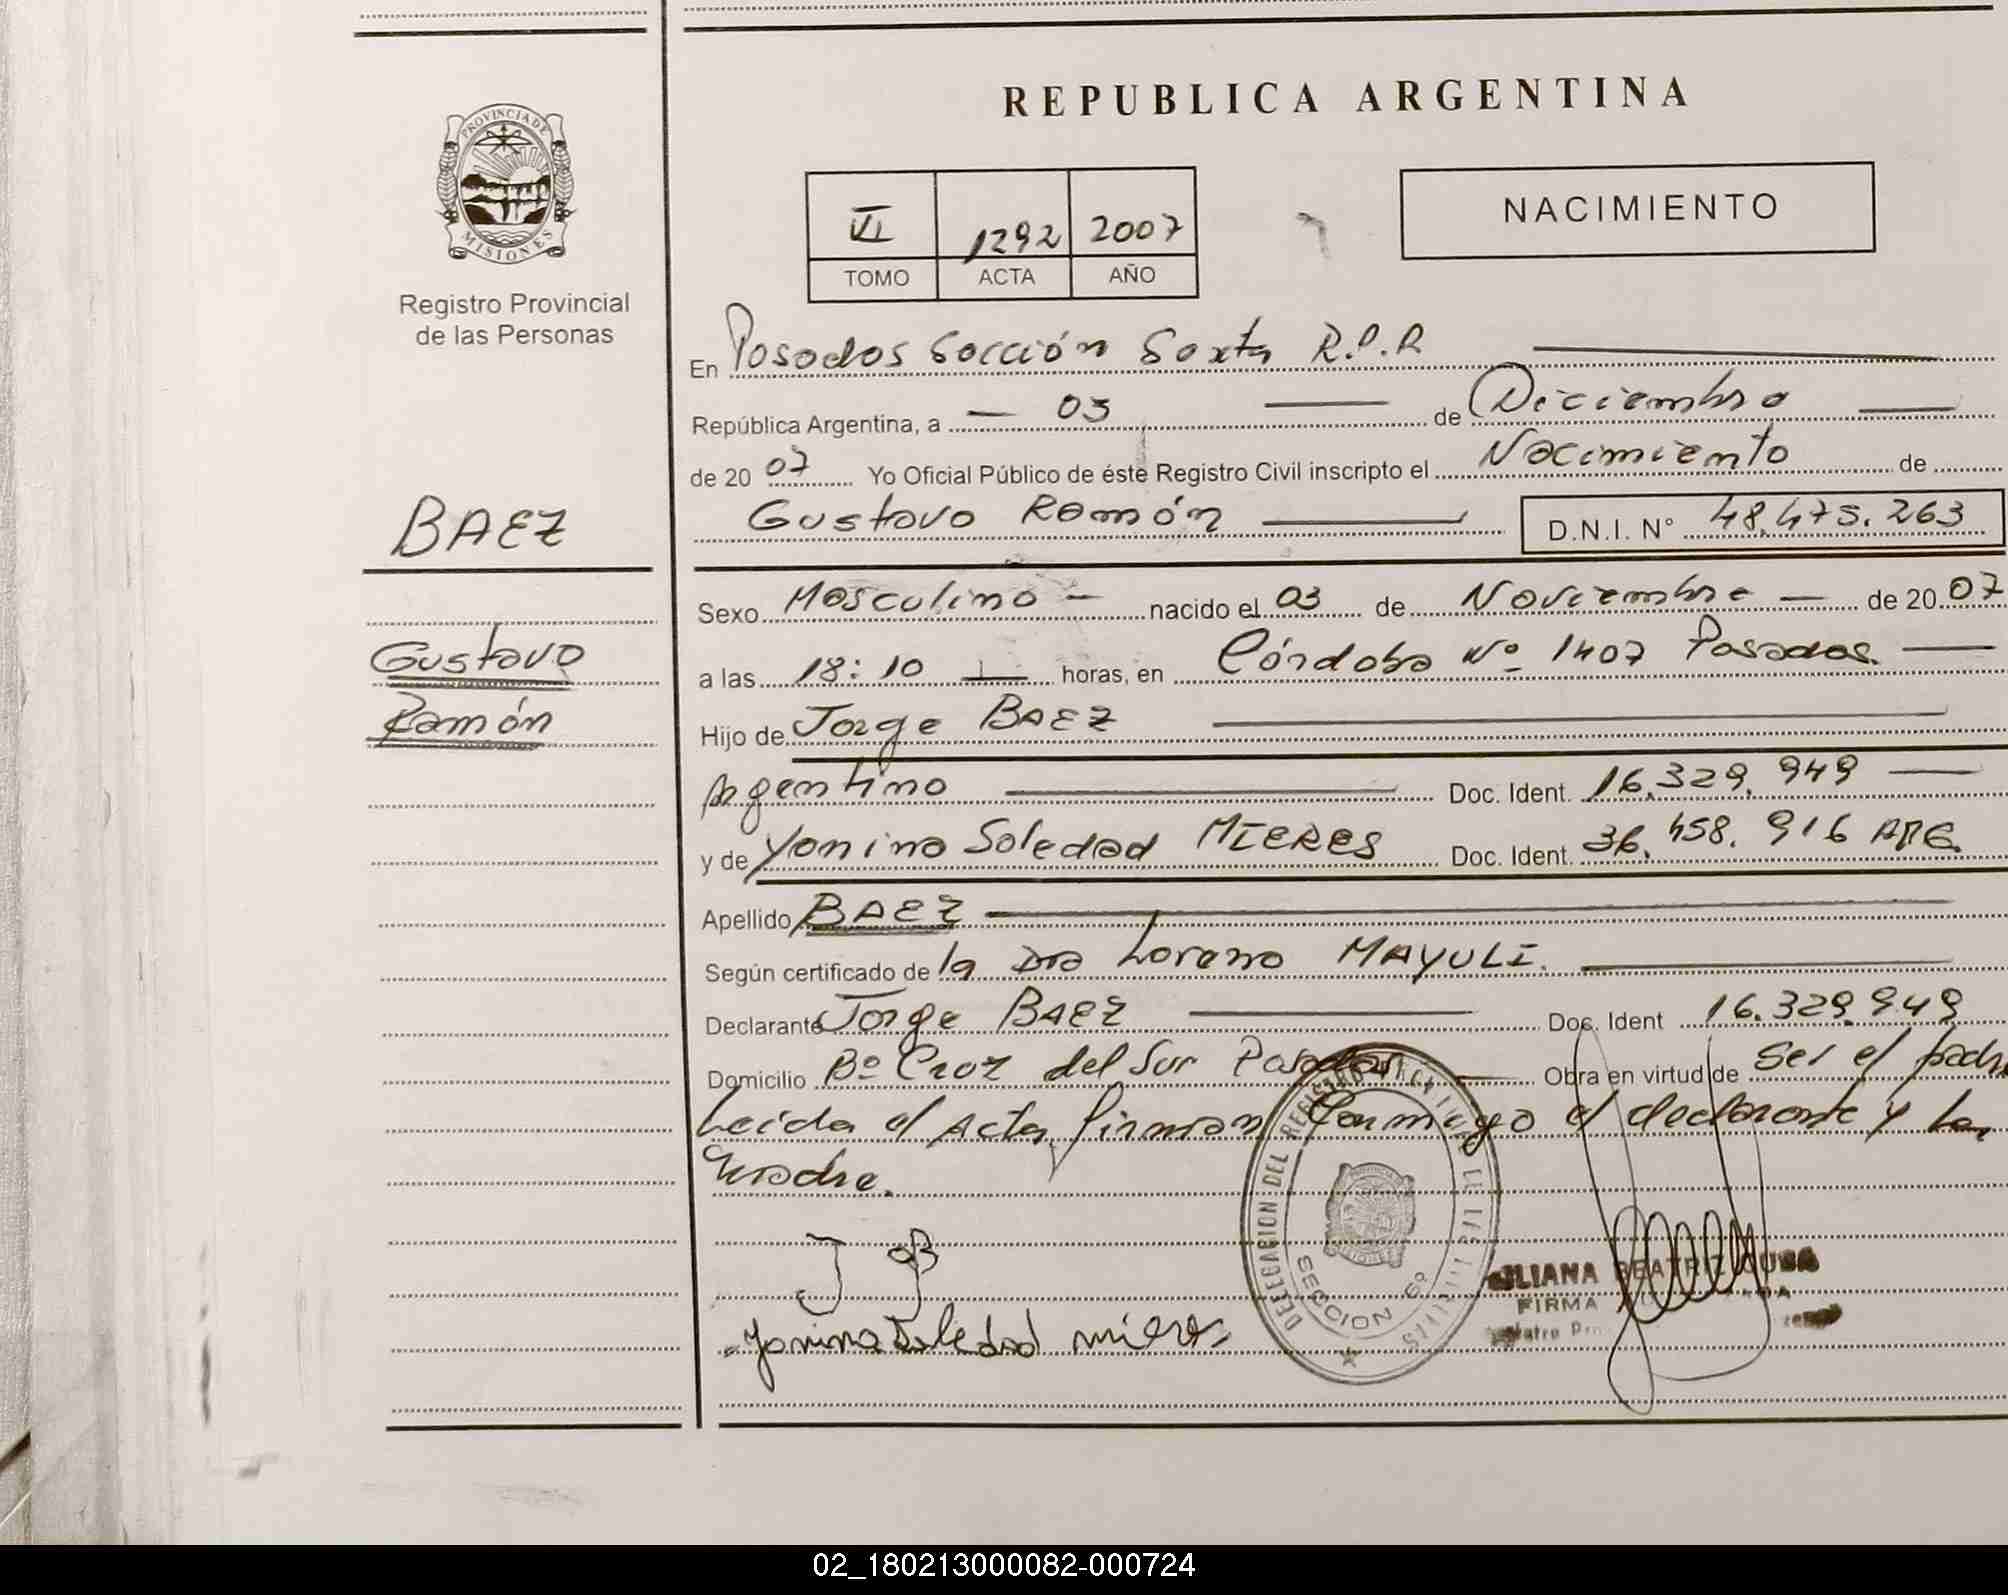 REPUBLICA ARGENTINA
PROVINCIA DE
MISIONES
Registro Provincial
de las Personas
VI 1292 2007
TOMO ACTA AÑO
NACIMIENTO
En Posadas Sección Sexta R.P.P
República Argentina, a 03 de Diciembre
de 20 07 Yo Oficial Público de éste Registro Civil inscripto el Nacimiento de
BAEZ
Gustavo Ramón D.N.I. N° 48.475.263
Sexo Masculino nacido el 03 de Noviembre de 20 07
Gustavo
a las 18:10 horas, en Córdoba Nº 1407 Posadas.
Ramón
Hijo de Jorge BAEZ
Argentino Doc. Ident. 16.329.949
y de Yanina Soledad MIERES Doc. Ident. 36.458.916 ARG.
Apellido BAEZ
Según certificado de la Dra Lorena MAYULI.
Declarante Jorge BAEZ Doc. Ident 16.329.949
Domicilio Bº Cruz del Sur Posadas Obra en virtud de Ser el padre
Leida el Acta, firman Conmigo el declarante y la
Madre.
J B
Yanina Soledad mieres
DELEGACION DEL REGISTRO
SECCION 6º
LILIANA BEATRIZ
FIRMA
02_180213000082-000724